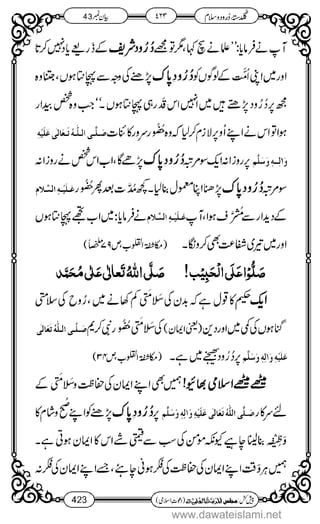 گلدستۂ دُرُود و سلام ٤٢٣ بیان نمبر 43
آپ نے فرمایا: ’’علما نے سچ کہا، مگر تو مجھے دُرُود شریف کے ذریعے یاد نہیں کرتا
اور میں اپنی اُمَّت کے لوگوں کو دُرُود پاک پڑھنے کی وجہ سے پہچانتا ہوں، جتنا وہ
مجھ پر دُرُود پڑھتے ہیں میں انہیں اس قدر ہی پہچانتا ہوں۔‘‘ جب وہ شخص بیدار
ہوا تو اس نے اپنے اُوپر لازم کرلیا کہ وہ حُضُور سرور کائنات صَلَّی اللہُ تَعَالٰی عَلَیْہِ
وَاٰلِہٖ وَسَلَّم پر روزانہ ایک سو مرتبہ دُرُود پاک پڑھے گا، اب اس شخص نے روزانہ
سو مرتبہ دُرُود پاک پڑھنا اپنا معمول بنالیا۔ کچھ مدَّت بعد پھر حُضُور عَلَیْہِ السَّلَام
کے دیدار سے مُشَرَّف ہوا، آپ عَلَیْہِ السَّلَام نے فرمایا: میں اب تجھے پہچانتا ہوں
اور میں تیری شفاعت بھی کروں گا۔ (مکاشفۃ القلوب، ص٧٩ ملخصاً)
صَلُّوْا عَلَی الْحَبِیْب! صَلَّی اللہُ تَعَالٰی عَلٰی مُحَمَّد
ایک حکیم کا قول ہے کہ بدن کی سَلامَتی کم کھانے میں، رُوح، کی سلامتی
گناہوں کی کمی میں اور دین (یعنی ایمان) کی سَلامَتی حُضُور نبیِّ کریم صَلَّی اللہُ تَعَالٰی
عَلَیْہِ وَاٰلِہٖ وَسَلَّم پر دُرُود بھیجنے میں ہے۔ (مکاشفۃ القلوب، ص٣٤)
میٹھے میٹھے اسلامی بھائیو! ہمیں بھی اپنے ایمان کی حفاظت وسَلامَتی کے
لئے سرکار صَلَّی اللہُ تَعَالٰی عَلَیْہِ وَاٰلِہٖ وَسَلَّم پر دُرُود پاک پڑھنے کو اپنے صُبح و شام کا
وَظِیْفَہ بنالینا چاہیے کیونکہ مؤمن کی سب سے قیمتی شے اس کا ایمان ہی ہوتی ہے۔
ہمیں ہر وَقت اپنے ایمان کی حفاظت کی فکر ہونی چاہئے، جسے اپنے ایمان کی فکر نہ
423 (دعوتِ اسلامی) پیش کش:
www.dawateislami.net